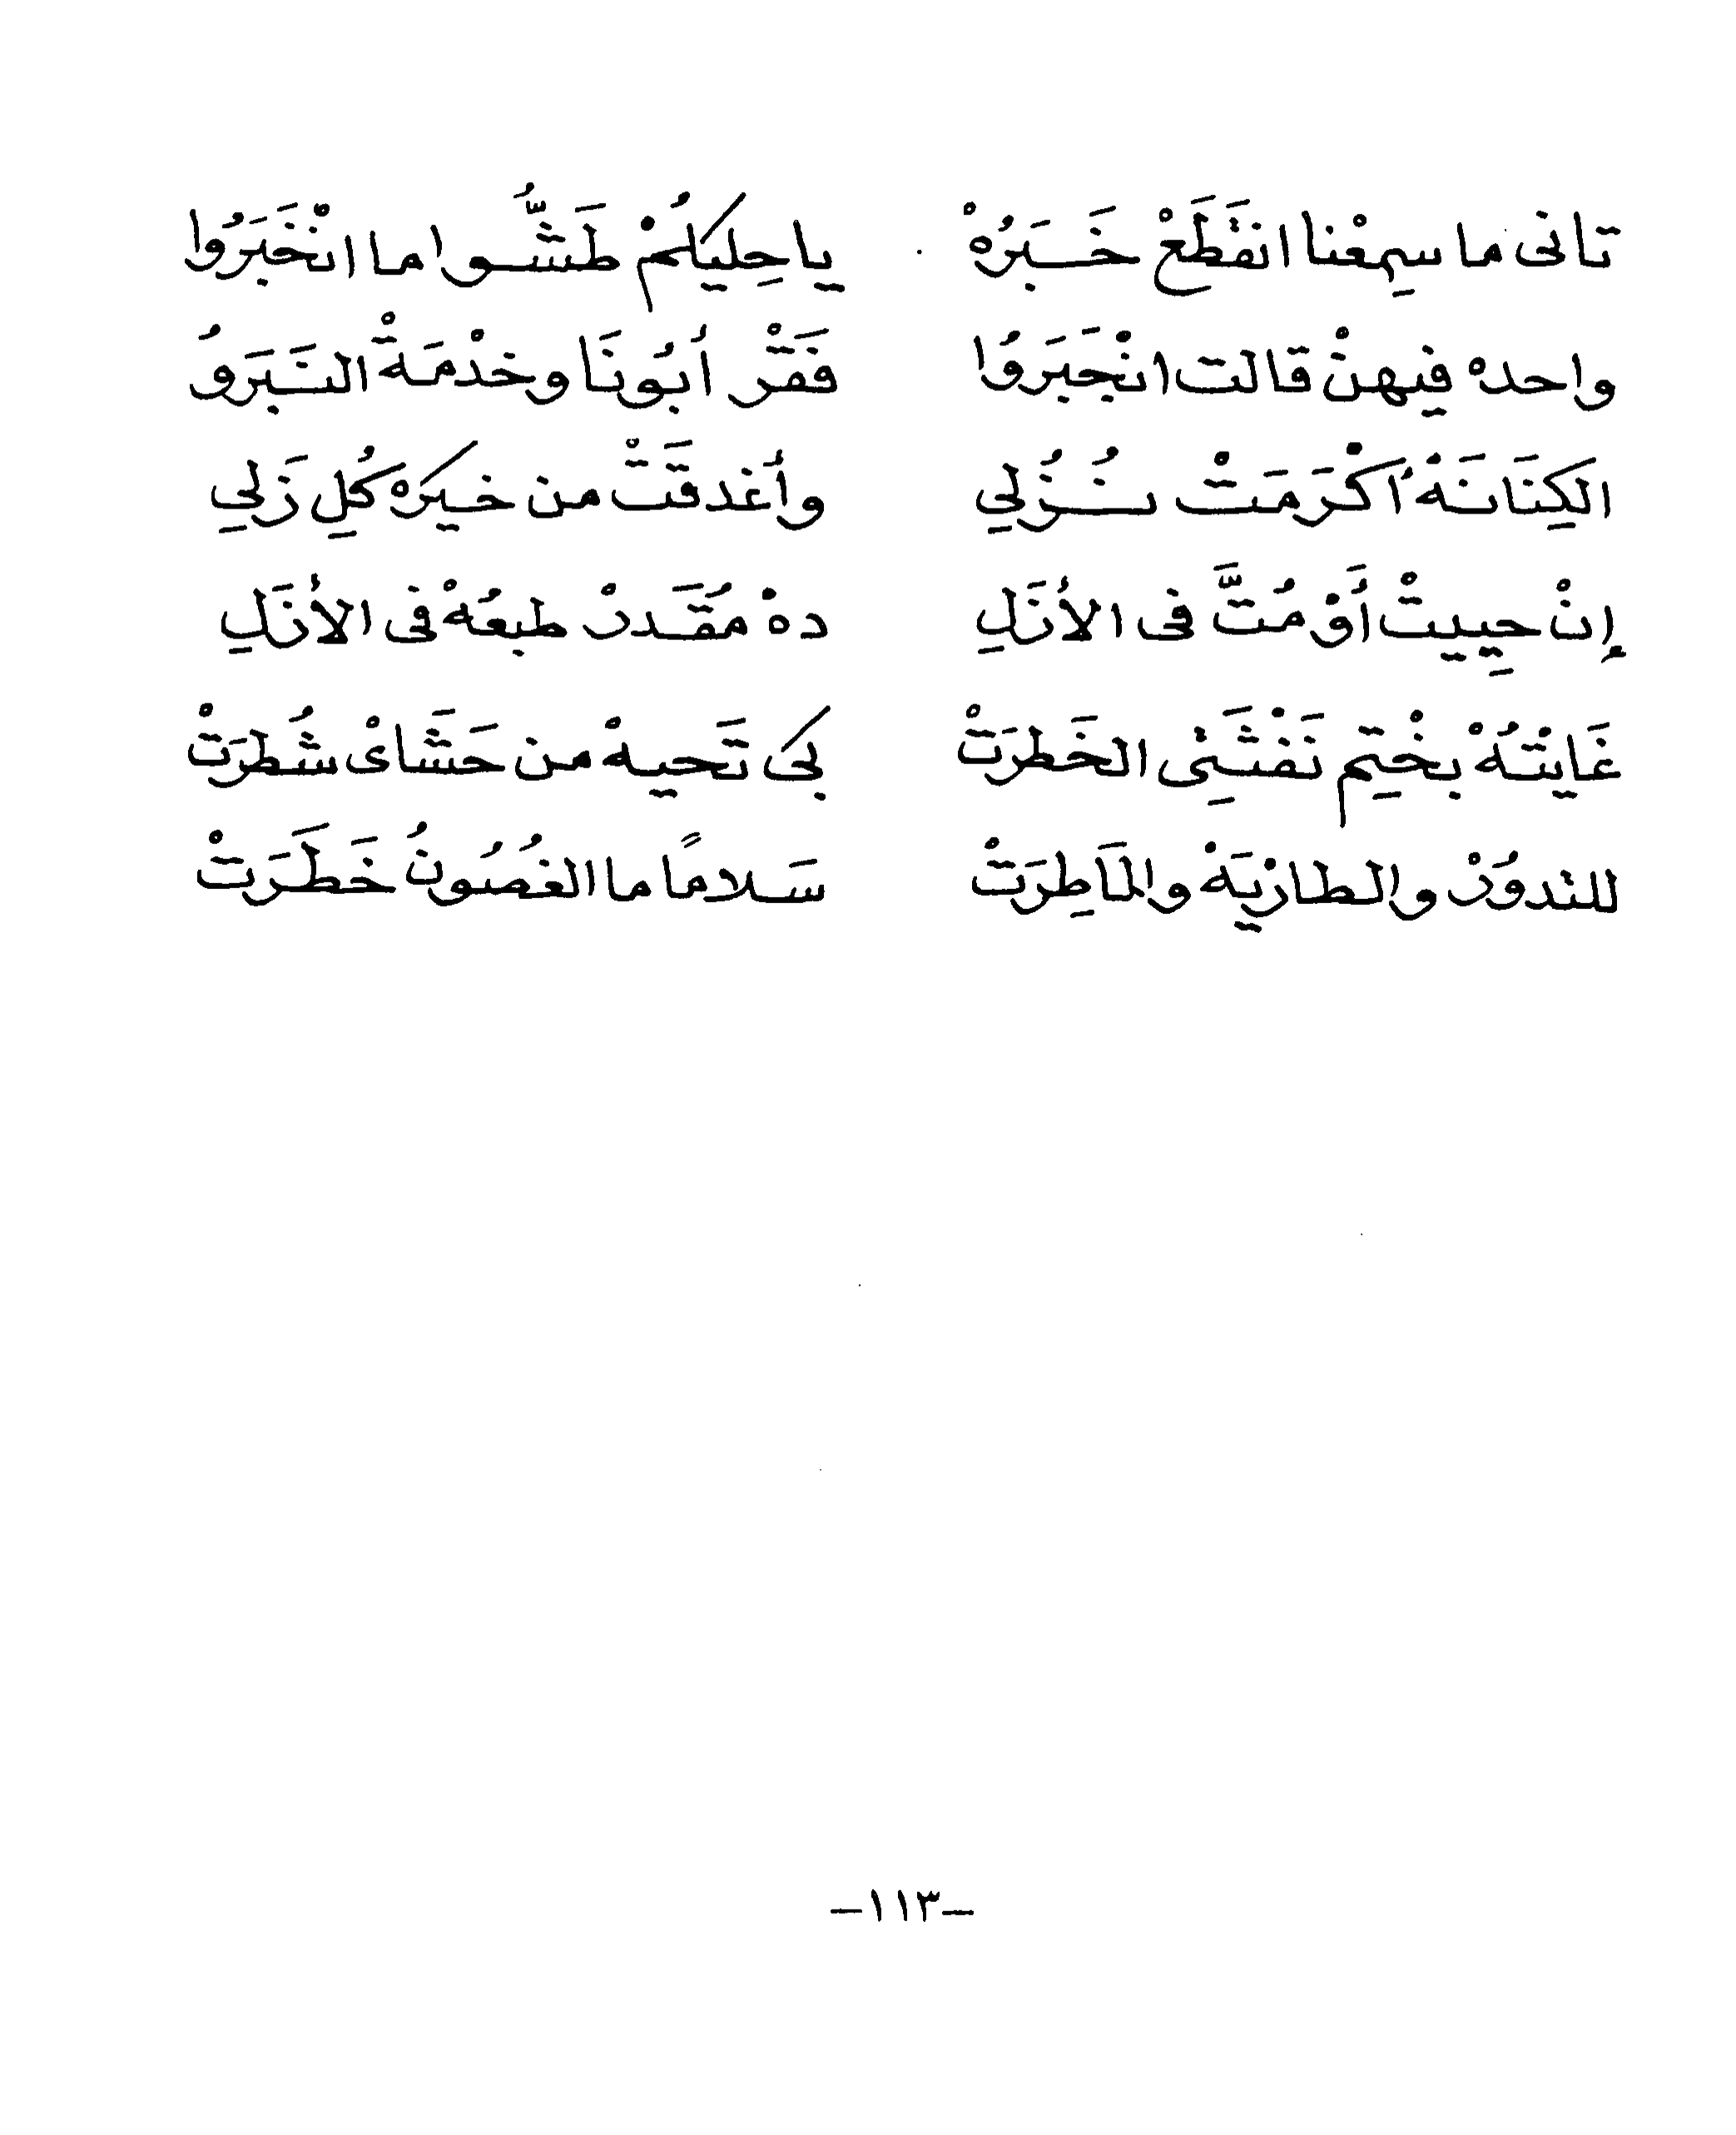 تانى ما سمِعْنا انقَطَعْ خَـبَرُهْ ياحِليكُمْ طَشُّـوا ما انْخَبَرُوا
واحده فيهنْ قالت انْجَبَرُوا فَقْر أبُونَا وخدْمَةْ النَـبَروُ
الكِنَانَهْ أكْرَمَتْ نُـزُلِي وأغدقَتْ من خيرَه كُلِ زَلِي
إنْ حِييتْ أوْ مُتَّ فى الأزَلِ دهْ مُقَـدرْ طبعُهْ فى الأزَلِ
غَايْتـُهْ بخْتِم نَفْثَـِى الخَطرَتْ بكى تَحيهْ من حَشَاىْ شُطرَتْ
للندوُرْ والطارْيَهْ والمَاطِرَتْ سَـلامًا ما الغُصُونُ خَطَـرَتْ
–١١٣–